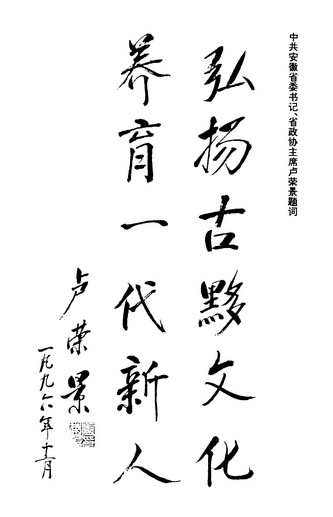 中共安徽省委书记、省政协主席卢荣景题词
弘扬古黟文化
养育一代新人
卢荣景
一九九六年十一月